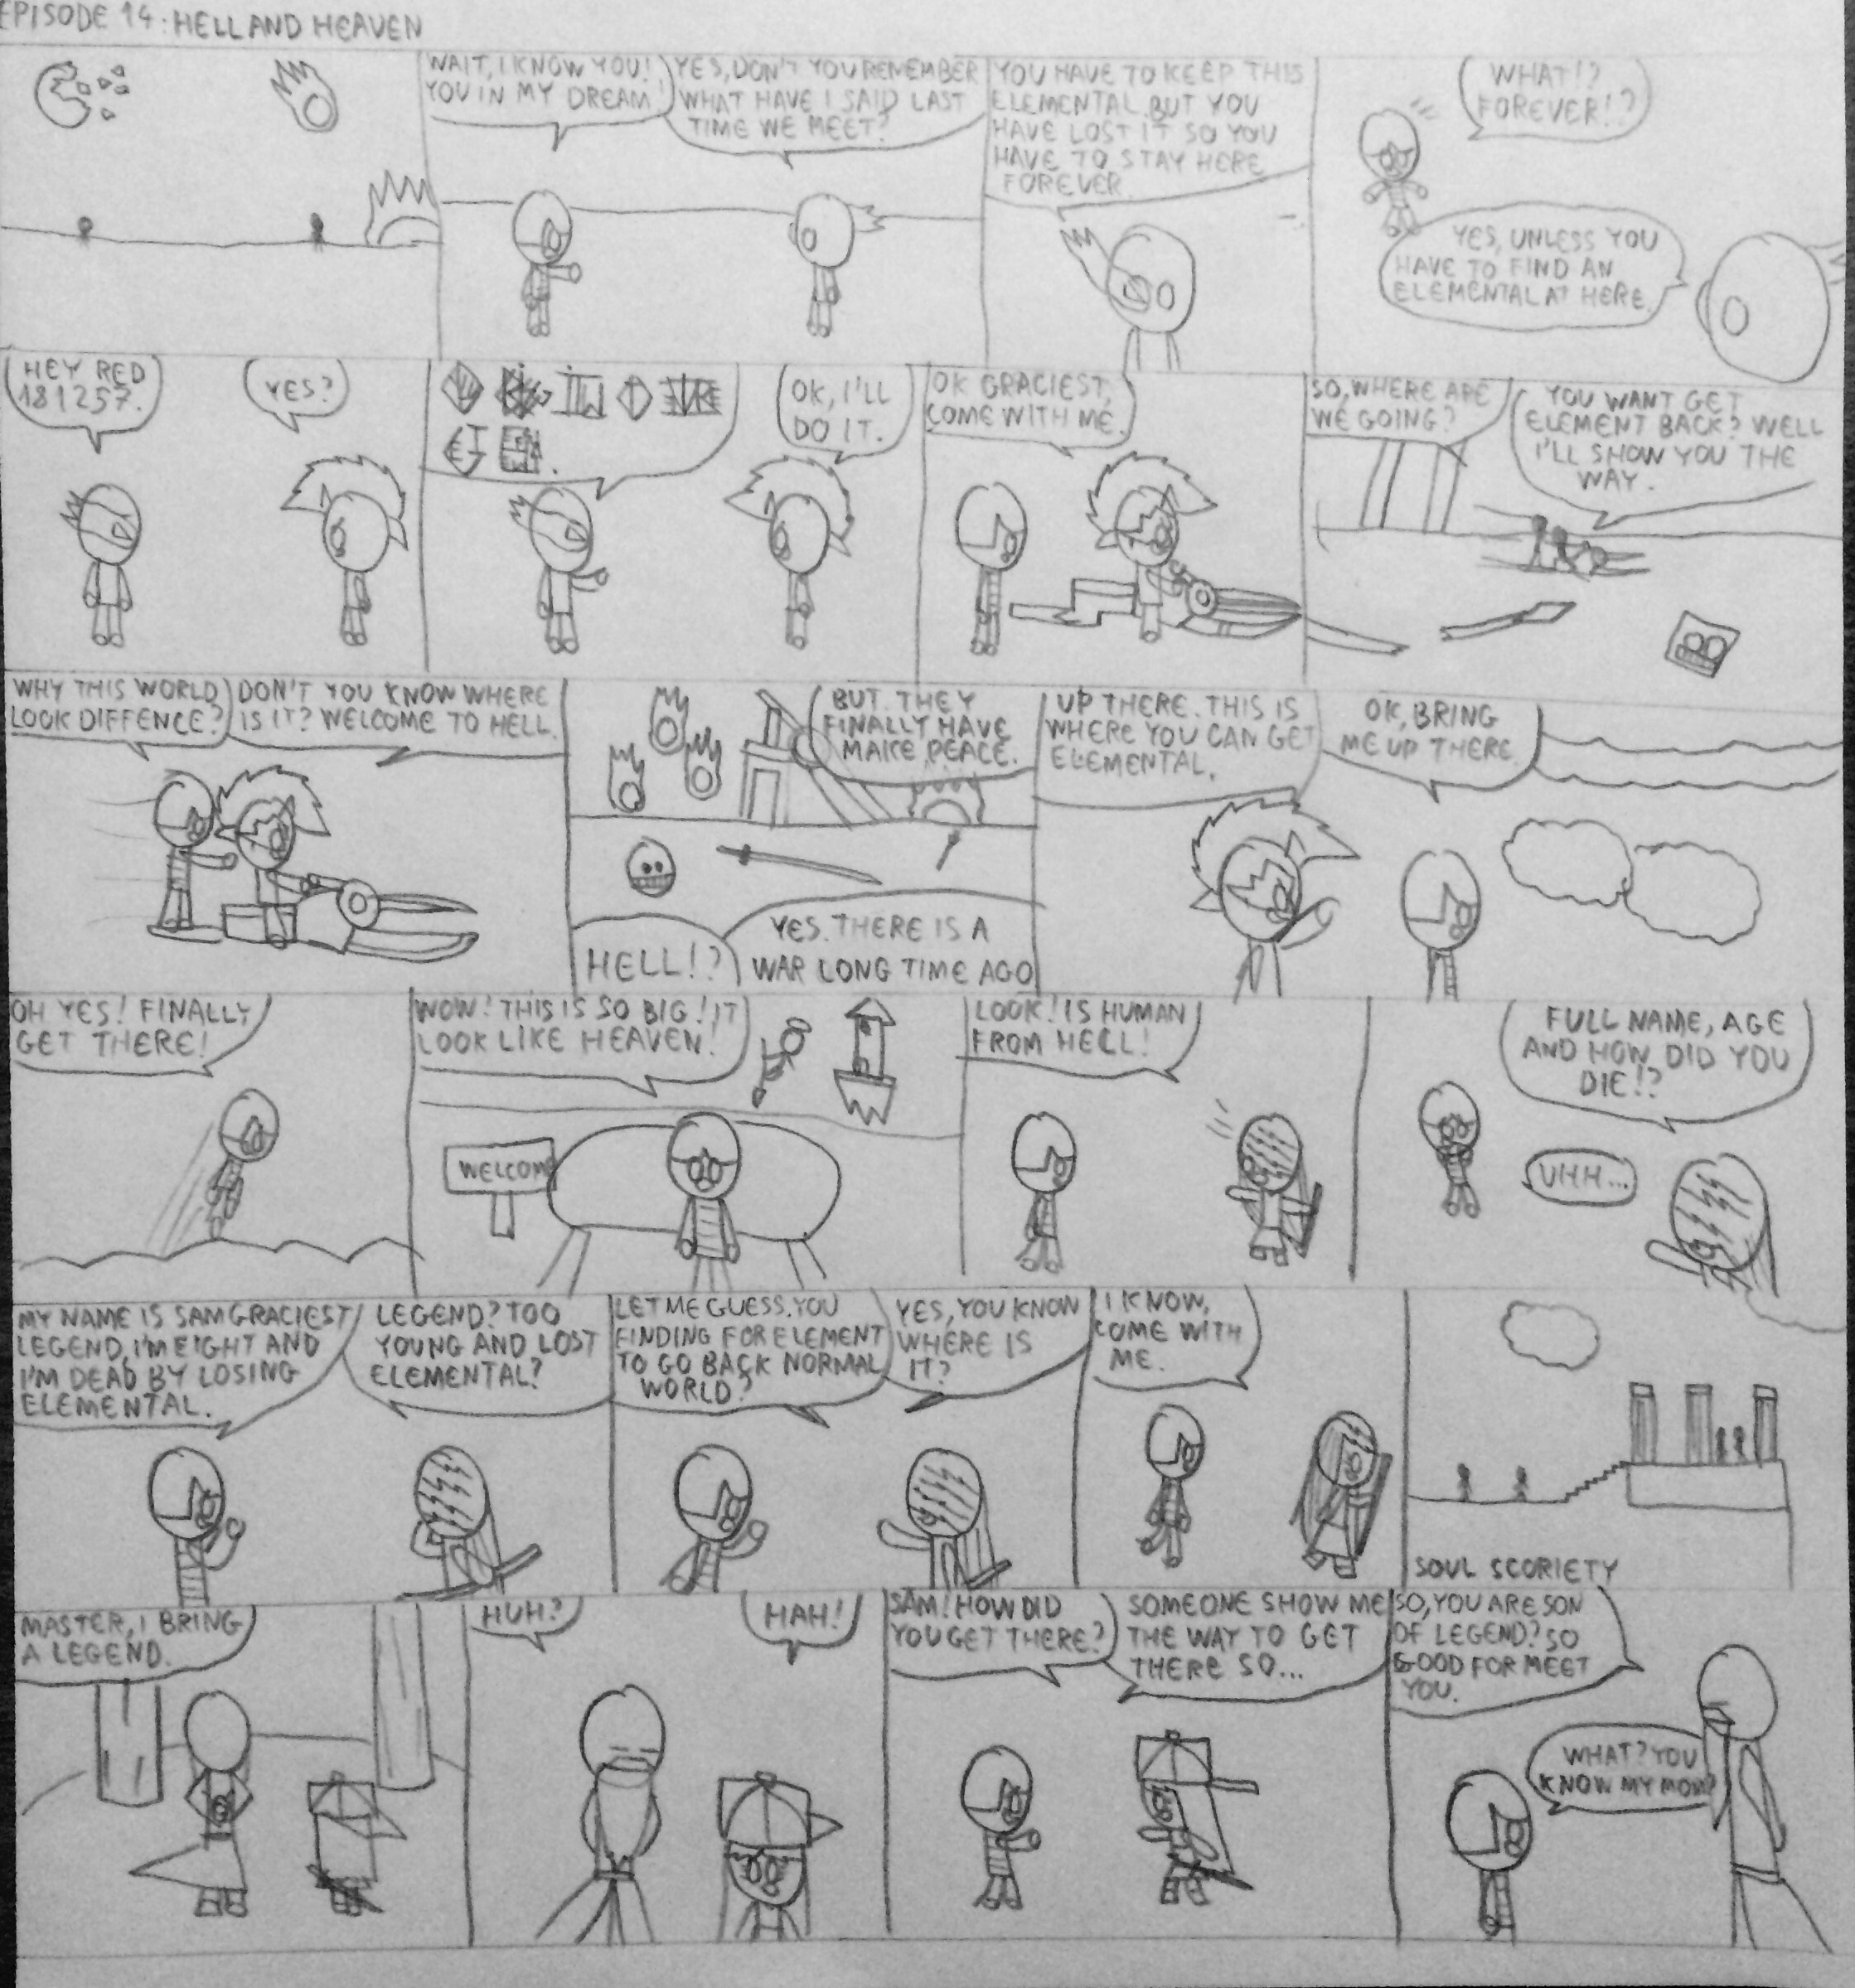 EPISODE 14: HELL AND HEAVEN
WAIT, I KNOW YOU!
YOU IN MY DREAM!
YES, DON'T YOU REMEMBER
WHAT HAVE I SAID LAST
TIME WE MEET?
YOU HAVE TO KEEP THIS
ELEMENTAL BUT YOU
HAVE LOST IT SO YOU
HAVE TO STAY HERE
FOREVER.
WHAT!?
FOREVER!?
YES, UNLESS YOU
HAVE TO FIND AN
ELEMENTAL AT HERE.
HEY RED
181257.
YES?
OK, I'LL
DO IT.
OK GRACIEST,
COME WITH ME.
SO, WHERE ARE
WE GOING?
YOU WANT GET
ELEMENT BACK? WELL
I'LL SHOW YOU THE
WAY.
WHY THIS WORLD
LOOK DIFFENCE?
DON'T YOU KNOW WHERE
IS IT? WELCOME TO HELL.
HELL!?
YES. THERE IS A
WAR LONG TIME AGO
BUT THEY
FINALLY HAVE
MAKE PEACE.
UP THERE. THIS IS
WHERE YOU CAN GET
ELEMENTAL.
OK, BRING
ME UP THERE
OH YES! FINALLY
GET THERE!
WOW! THIS IS SO BIG! IT
LOOK LIKE HEAVEN!
WELCOM
LOOK! IS HUMAN
FROM HELL!
FULL NAME, AGE
AND HOW DID YOU
DIE!?
UHH...
MY NAME IS SAM GRACIEST
LEGEND, I'M EIGHT AND
I'M DEAD BY LOSING
ELEMENTAL.
LEGEND? TOO
YOUNG AND LOST
ELEMENTAL?
LET ME GUESS. YOU
FINDING FOR ELEMENT
TO GO BACK NORMAL
WORLD?
YES, YOU KNOW
WHERE IS
IT?
I KNOW,
COME WITH
ME.
SOUL SCORIETY
MASTER, I BRING
A LEGEND.
HUH?
HAH!
SAM! HOW DID
YOU GET THERE?
SOMEONE SHOW ME
THE WAY TO GET
THERE SO...
SO, YOU ARE SON
OF LEGEND? SO
GOOD FOR MEET
YOU.
WHAT? YOU
KNOW MY MOM?